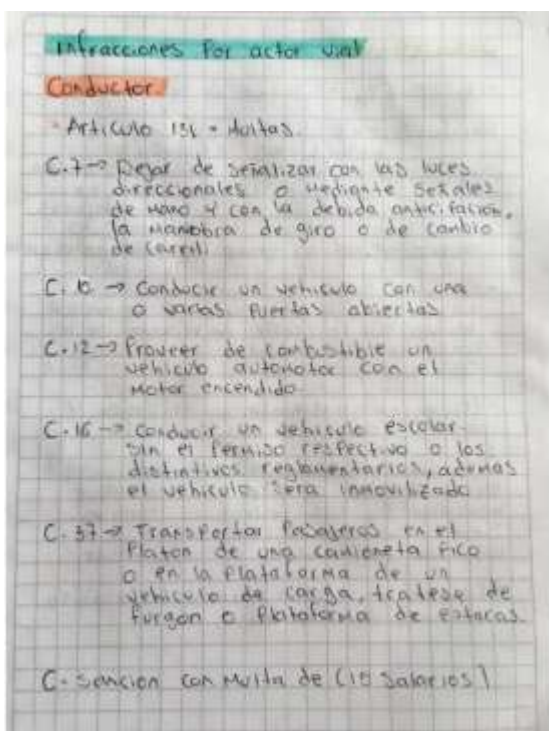 Infracciones Por actor vial
Conductor.
- Artículo 131 - Multas.
C.7 → Dejar de señalizar con las luces
direccionales o mediante señales
de mano y con la debida anticipación,
la maniobra de giro o de cambio
de carril.
C. 10 → Conducir un vehiculo con una
o varias Puertas abiertas
C.12 → Proveer de combustible un
vehiculo automotor con el
motor encendido.
C.16 → Conducir un vehiculo escolar
sin el Permiso respectivo o los
distintivos reglamentarios, además
el vehiculo sera inmovilizado
C.37 → Transportar Pasajeros en el
Platon de una camioneta Pico
o en la Plataforma de un
vehiculo de carga, tratese de
furgon o Plataforma de estacas.
C- Sancion con Multa de (15 Salarios)